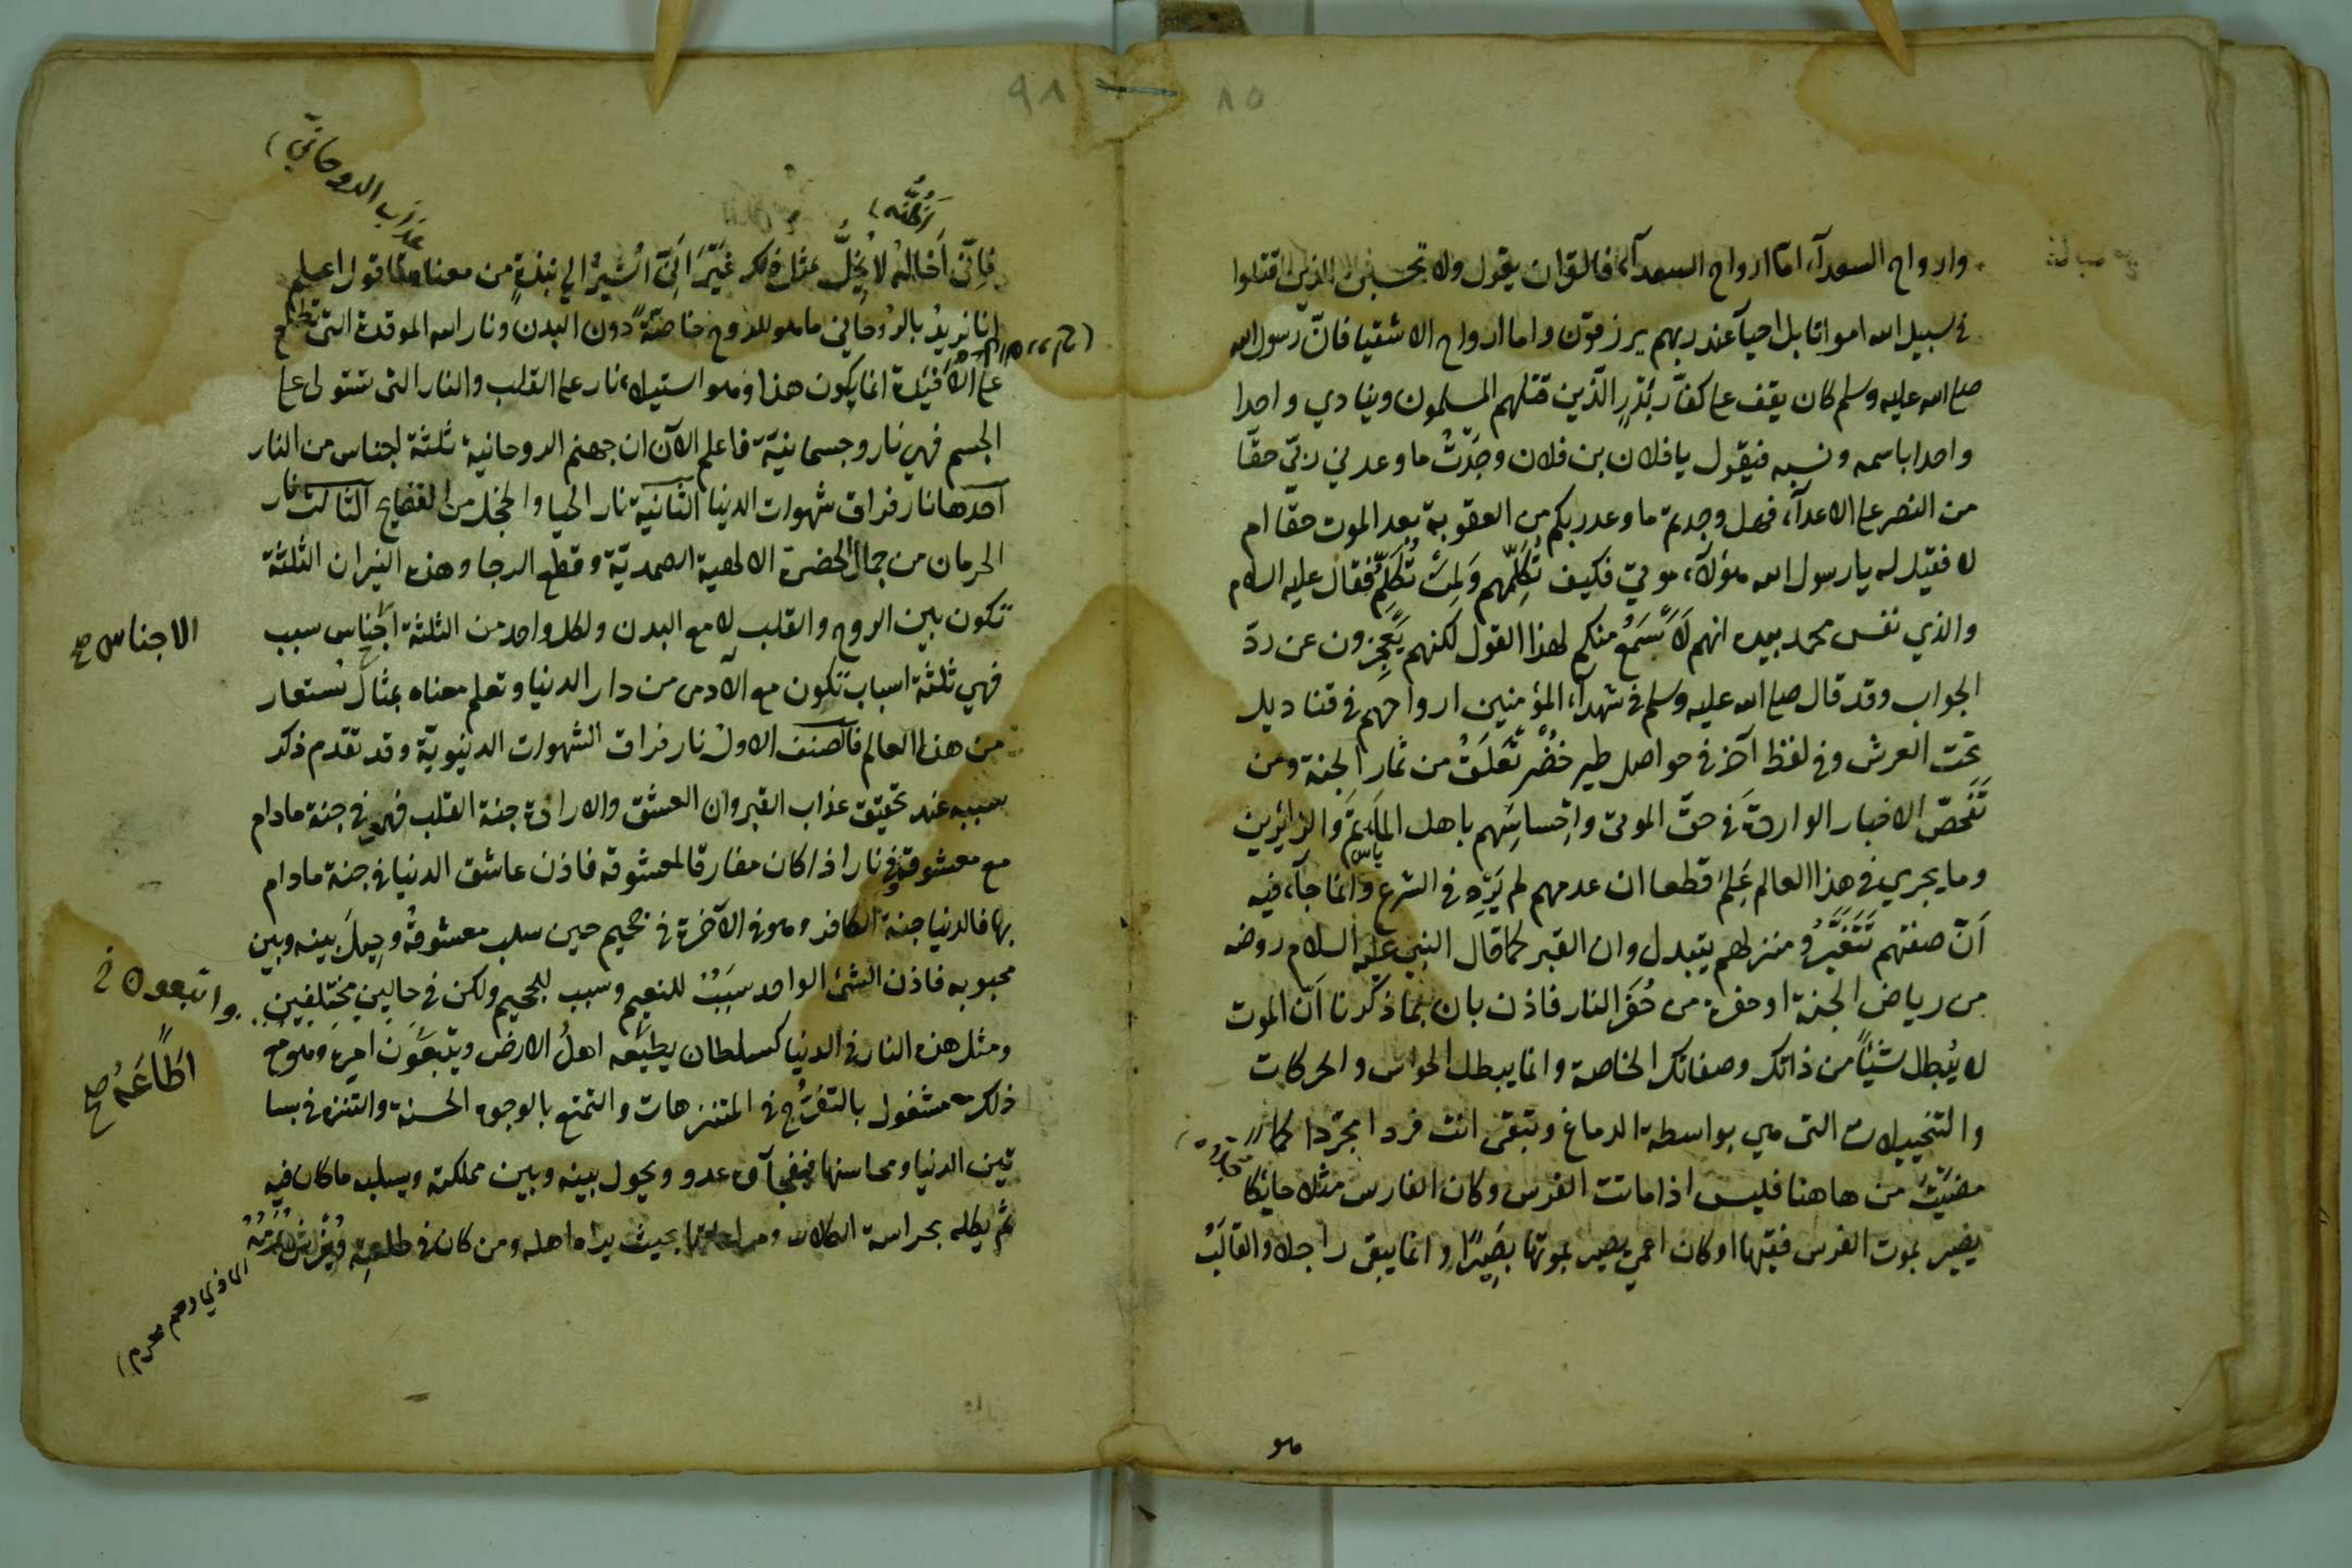 ٨٥
وارواح السعدآء اما ارواح السعدآء فالقران يقول ولا تحسبن الذين قتلوا
في سبيل الله امواتا بل احيآ عند ربهم يرزقون واما ارواح الاشقيا فان رسول الله
صلى الله عليه وسلم كان يقف على كفار بدر الذين قتلهم المسلمون وينادي واحدا
واحدا باسمه ونسبه فيقول يا فلان بن فلان وجدت ما وعدني ربي حقا
من النصر على الاعدآء فهل وجدتم ما وعد ربكم من العقوبة بعد الموت حقا ام
لا فقيل له يا رسول الله هؤلآء موتي فكيف تكلمهم ولمن تكلم فقال عليه السلام
والذي نفس محمد بيده انهم لاسمع منكم لهذا القول لكنهم يعجزون عن رد
الجواب وقد قال صلى الله عليه وسلم في شهداء المؤمنين ارواحهم في قناديل
تحت العرش وفي لفظ آخر في حواصل طير خضر تعلق من ثمار الجنة ومن
تفحص الاخبار الواردة في حق الموتى واحساسهم باهل المآتم والزائرين
وما يجري في هذا العالم علم قطعا ان عدمهم لم يرد في الشرع وانما جآء فيه
ان صفتهم تتغير ومنزلهم يتبدل وان القبر كما قال النبي عليه السلام روضه
من رياض الجنة او حفرة من حفر النار فاذن بان بما ذكرنا ان الموت
لا يبطل شيئا من ذاتك وصفاتك الخاصة وانما يبطل الحواس والحركات
والتخييلات التى هي بواسطه الدماغ وتبقى انت فردا مجردا كما
مضيت من هاهنا فليس اذا ماتت الفرس وكان الفارس مثلا حايكا
يصير بموت الفرس فقيها او كان اعمي يصير بموتها بصيرا وانما يبقى راجلا والقالب
هو
٩٨
نظنه
عذاب الروحاني
فاني اخاله لا يخل بمثل ذلك غير اني اشير الي نبذة من معناه فاقول اعلم
انا نريد بالروحاني ما هو للروح خاصة دون البدن ونار الله الموقدة التى تطلع
على الافئدة انما يكون هذا وهو استيلاء نار على القلب والنار التى تستولى على
الجسم فهي نار جسمانية فاعلم الآن ان جهنم الروحانية ثلثة اجناس من النار
احدها نار فراق شهوات الدنيا الثانية نار الحيا والخجل من الفضايح الثالث نار
الحرمان من جمال الحضرة الالهية الصمدية وقطع الرجا وهذه النيران الثلثة
تكون بين الروح والقلب لا مع البدن ولكل واحد من الثلثة اجناس سبب
الاجناس صح
فهي ثلثة اسباب تكون مع الآدمى من دار الدنيا وتعلم معناه بمثال نستعار
من هذا العالم فالصنف الاول نار فراق الشهوات الدنيوية وقد تقدم ذكر
سببه عند تحقيق عذاب القبر وان العشق والارادة جنة القلب فهو في جنة مادام
مع معشوقه وفي نار اذا كان مفارقا لمعشوقه فاذن عاشق الدنيا في جنة مادام
بها فالدنيا جنة الكافر وهو في الآخرة في جحيم حين سلب معشوقه وحيل بينه وبين
محبوبه فاذن الشئ الواحد سبب للنعيم وسبب للجحيم ولكن في حالين مختلفين
واتبعوه خ
ومثل هذه النار في الدنيا كسلطان يطيعه اهل الارض ويتبعون امره وهو مع
اطاعه صح
ذلك مشغول بالتفرج في المتنزهات والتمتع بالوجوه الحسنة والتنزه في بسا
تين الدنيا ومحاسنها ففجآه عدو ويحول بينه وبين مملكته ويسلبه ما كان فيه
ثم يكله بحراسة الكلاب ومراعاتها بحيث يراه اهله ومن كان في طاعته